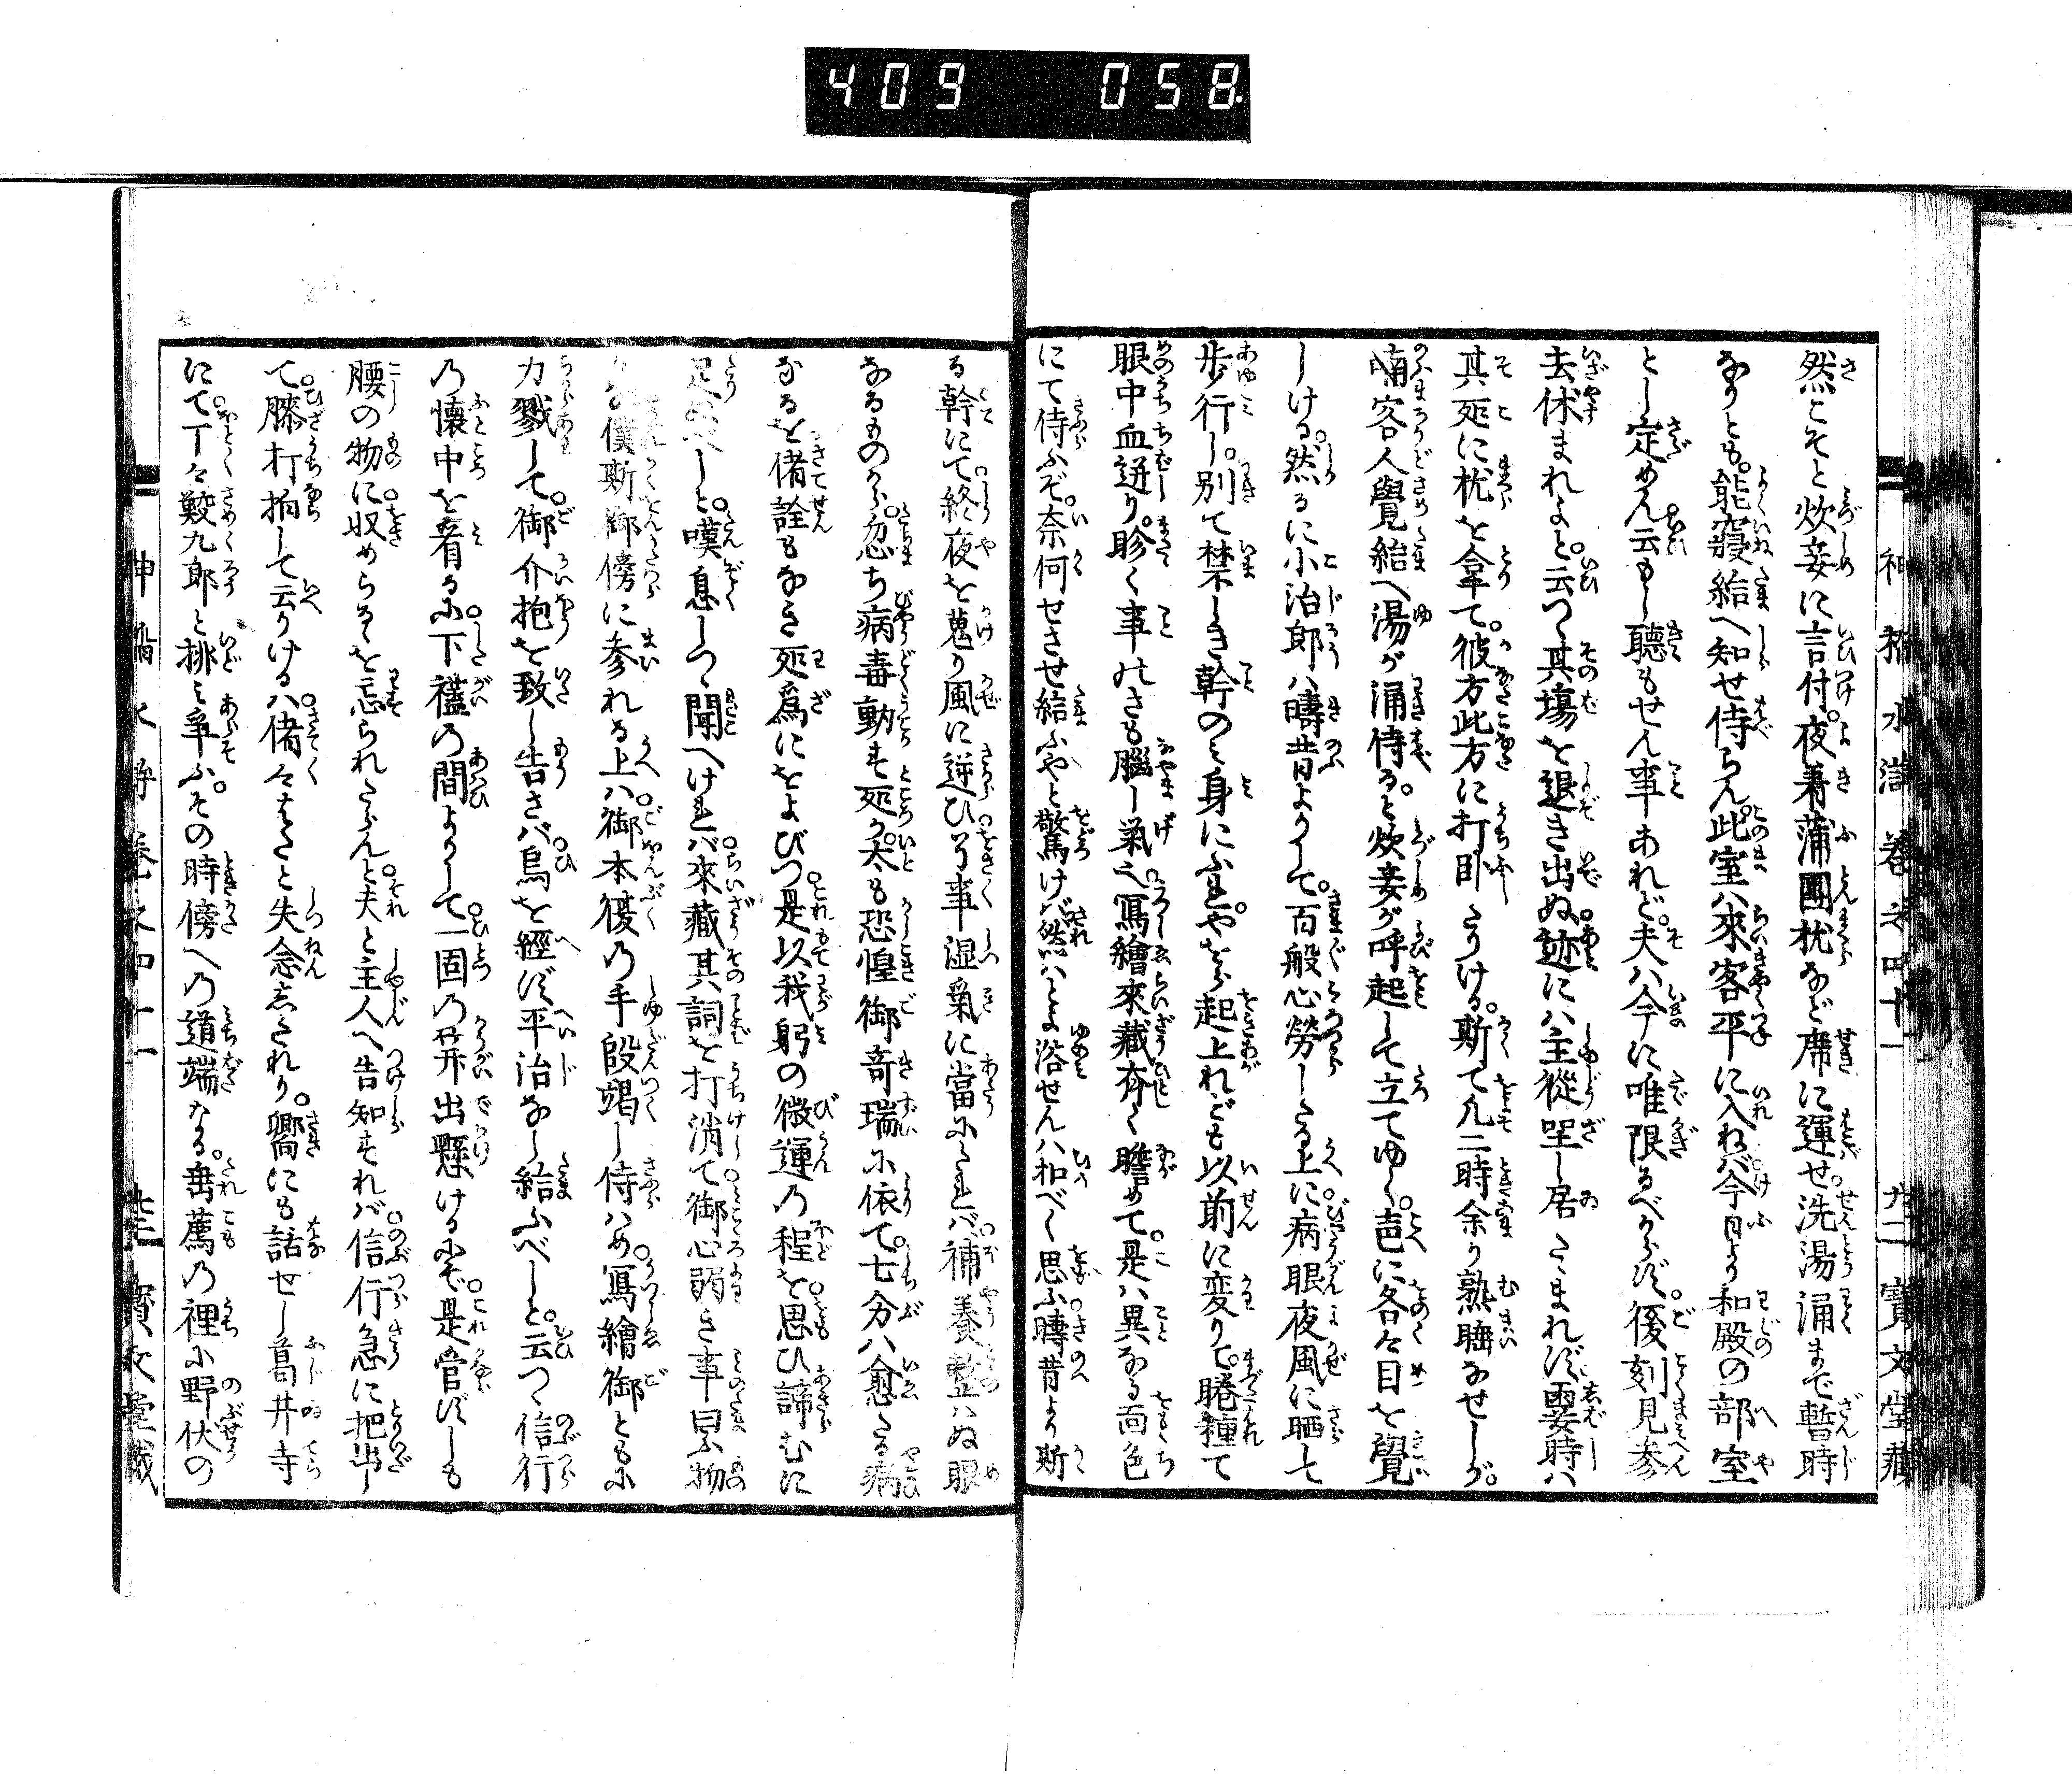 409 058
神稲水滸 巻之四十一 九二 寶文堂藏
然こそと炊妾に言付夜着蒲團枕など席に運せ洗湯涌まで暫時
なりとも能寤給へ知せ侍らん此室ハ來客平に入ねバ今日より和殿の部室
とし定めん云もし聽もせん事あれど夫ハ今に唯限るべからず後刻見参
去休まれよと云つゝ其場を退き出ぬ迹にハ主從坐し居たまれず霎時ハ
其処に枕を拿て彼方此方に打卧たりける斯て凡二時余り熟睡なせしが
晡客人覺給へ湯が涌侍ると炊妾が呼起して立てゆく声に各々目を覺
しける然るに小治郎ハ疇昔よりして百般心勞したる上に病眼夜風に晒して
歩行し別て禁しき幹のミ身にふれやをら起上れども以前に変りて睠種て
眼中血迸り眕く事のさも腦し氣之寫繪來藏夲く瞻めて是ハ異なる面色
にて侍ふぞ奈何せさせ給ふやと驚けバ然ハとよ浴せんハ扣べく思ふ疇昔より斯
る幹にて終夜を蒐り風に逆ひ々事湿氣に當ふれバ補養整ハぬ眼
なるものから忽ち病毒動き処か太も恐惶御奇瑞ふ依て七分ハ愈たる病
なるを偖詮もなき処爲にをよびつ是以我躬の微運の程を思ひ諦むに
足ぬべしと嘆息しつゝ聞へけれバ來藏其詞を打消て御心弱き事曰ふ物
僕斯御傍に参れる上ハ御本復の手段竭し侍ハめ寫繪御ともふ
力戮して御介抱を致し告さバ烏を經ず平治なし給ふべしと云つゝ信行
乃懐中を看るふ下襤の間よりして一固の笄出懸けるふぞ是管ずしも
腰の物に収めらるゝを忘られたらんと夫と主人へ告知すれバ信行急に把出し
て膝打拍して云りけるハ偖々はたと失念志たれり嚮にも話せし葛井寺
にて丁々鮫九郎と挑ミ爭ふその時傍への道端なる垂薦の裡ふ野伏の
神稲水滸巻之四十一 廿二 寳文堂藏